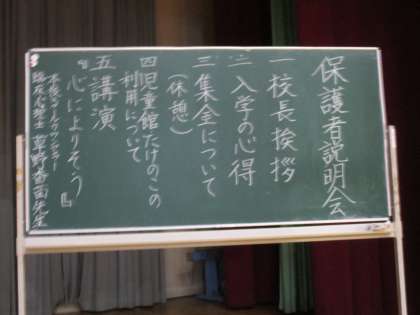 保護者説明会
一 校長挨拶
二 入学の心得
三 集会について
(休憩)
四 児童館たけのこの
利用について
五 講演
『心によりそう』
本校スクールカウンセラー
臨床心理士 草野香苗先生